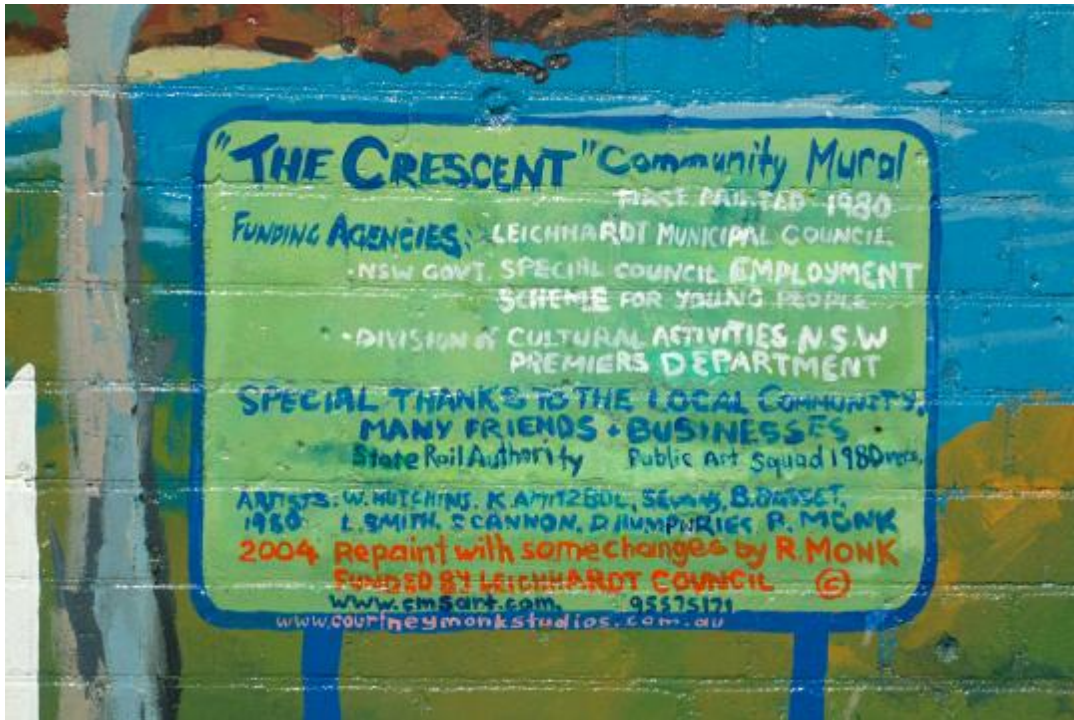 "THE CRESCENT" Community Mural
FIRST PAINTED 1980
FUNDING AGENCIES: LEICHHARDT MUNICIPAL COUNCIL
·NSW GOVT. SPECIAL COUNCIL EMPLOYMENT
SCHEME FOR YOUNG PEOPLE
·DIVISION of CULTURAL ACTIVITIES N.S.W
PREMIERS DEPARTMENT
SPECIAL THANKS TO THE LOCAL COMMUNITY,
MANY FRIENDS + BUSINESSES
State Rail Authority Public Art Squad 1980
ARTISTS: W. HUTCHINS, K. B.
1980 L. SMITH, CANNON, D. HUMPHRIES R. MONK
2004 Repaint with some changes by R. MONK
FUNDED BY LEICHHARDT COUNCIL ©
www.cmsart.com.
www.courtneymonkstudios.com.au